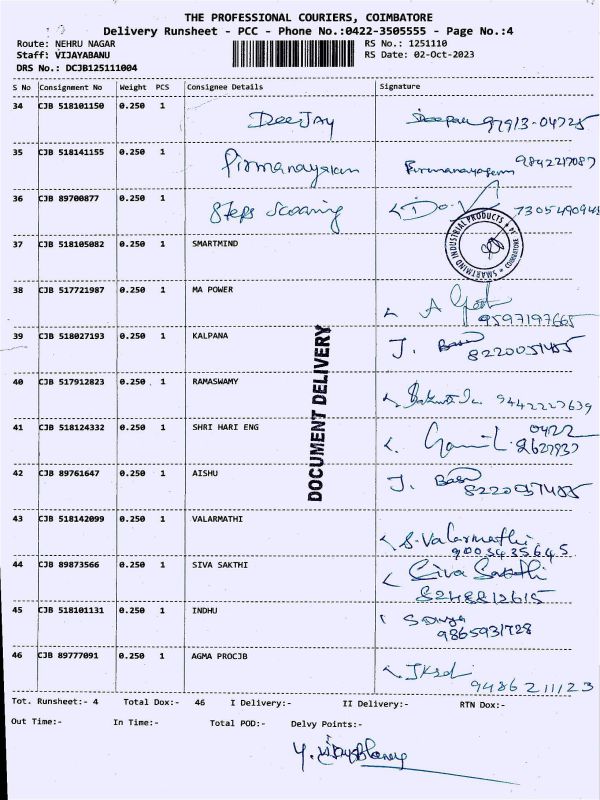 THE PROFESSIONAL COURIERS, COIMBATORE
Delivery Runsheet - PCC - Phone No.:0422-3505555 - Page No.:4
Route: NEHRU NAGAR RS No.: 1251110
Staff: VIJAYABANU RS Date: 02-Oct-2023
DRS No.: DCJB125111004
S No Consignment No Weight PCS Consignee Details Signature
34 CJB 518101150 0.250 1 DeeJAY Deepan 97913-04725
35 CJB 518141155 0.250 1 9842217087
36 CJB 89700877 0.250 1 Steps 7305490945
37 CJB 518105082 0.250 1 SMARTMIND
SMARTMIND INDUSTRIAL PRODUCTS COIMBATORE
38 CJB 517721987 0.250 1 MA POWER A 9597197665
39 CJB 518027193 0.250 1 KALPANA J.
40 CJB 517912823 0.250 1 RAMASWAMY 9442227639
41 CJB 518124332 0.250 1 SHRI HARI ENG 0422
2627937
42 CJB 89761647 0.250 1 AISHU J.
43 CJB 518142099 0.250 1 VALARMATHI S. Valarmathi
9003435645
44 CJB 89873566 0.250 1 SIVA SAKTHI Siva Sakthi
8248812615
45 CJB 518101131 0.250 1 INDHU S Divya
9865931728
46 CJB 89777091 0.250 1 AGMA PROCJB
9486211123
DOCUMENT DELIVERY
Tot. Runsheet:- 4 Total Dox:- 46 I Delivery:- II Delivery:- RTN Dox:-
Out Time:- In Time:- Total POD:- Delvy Points:-